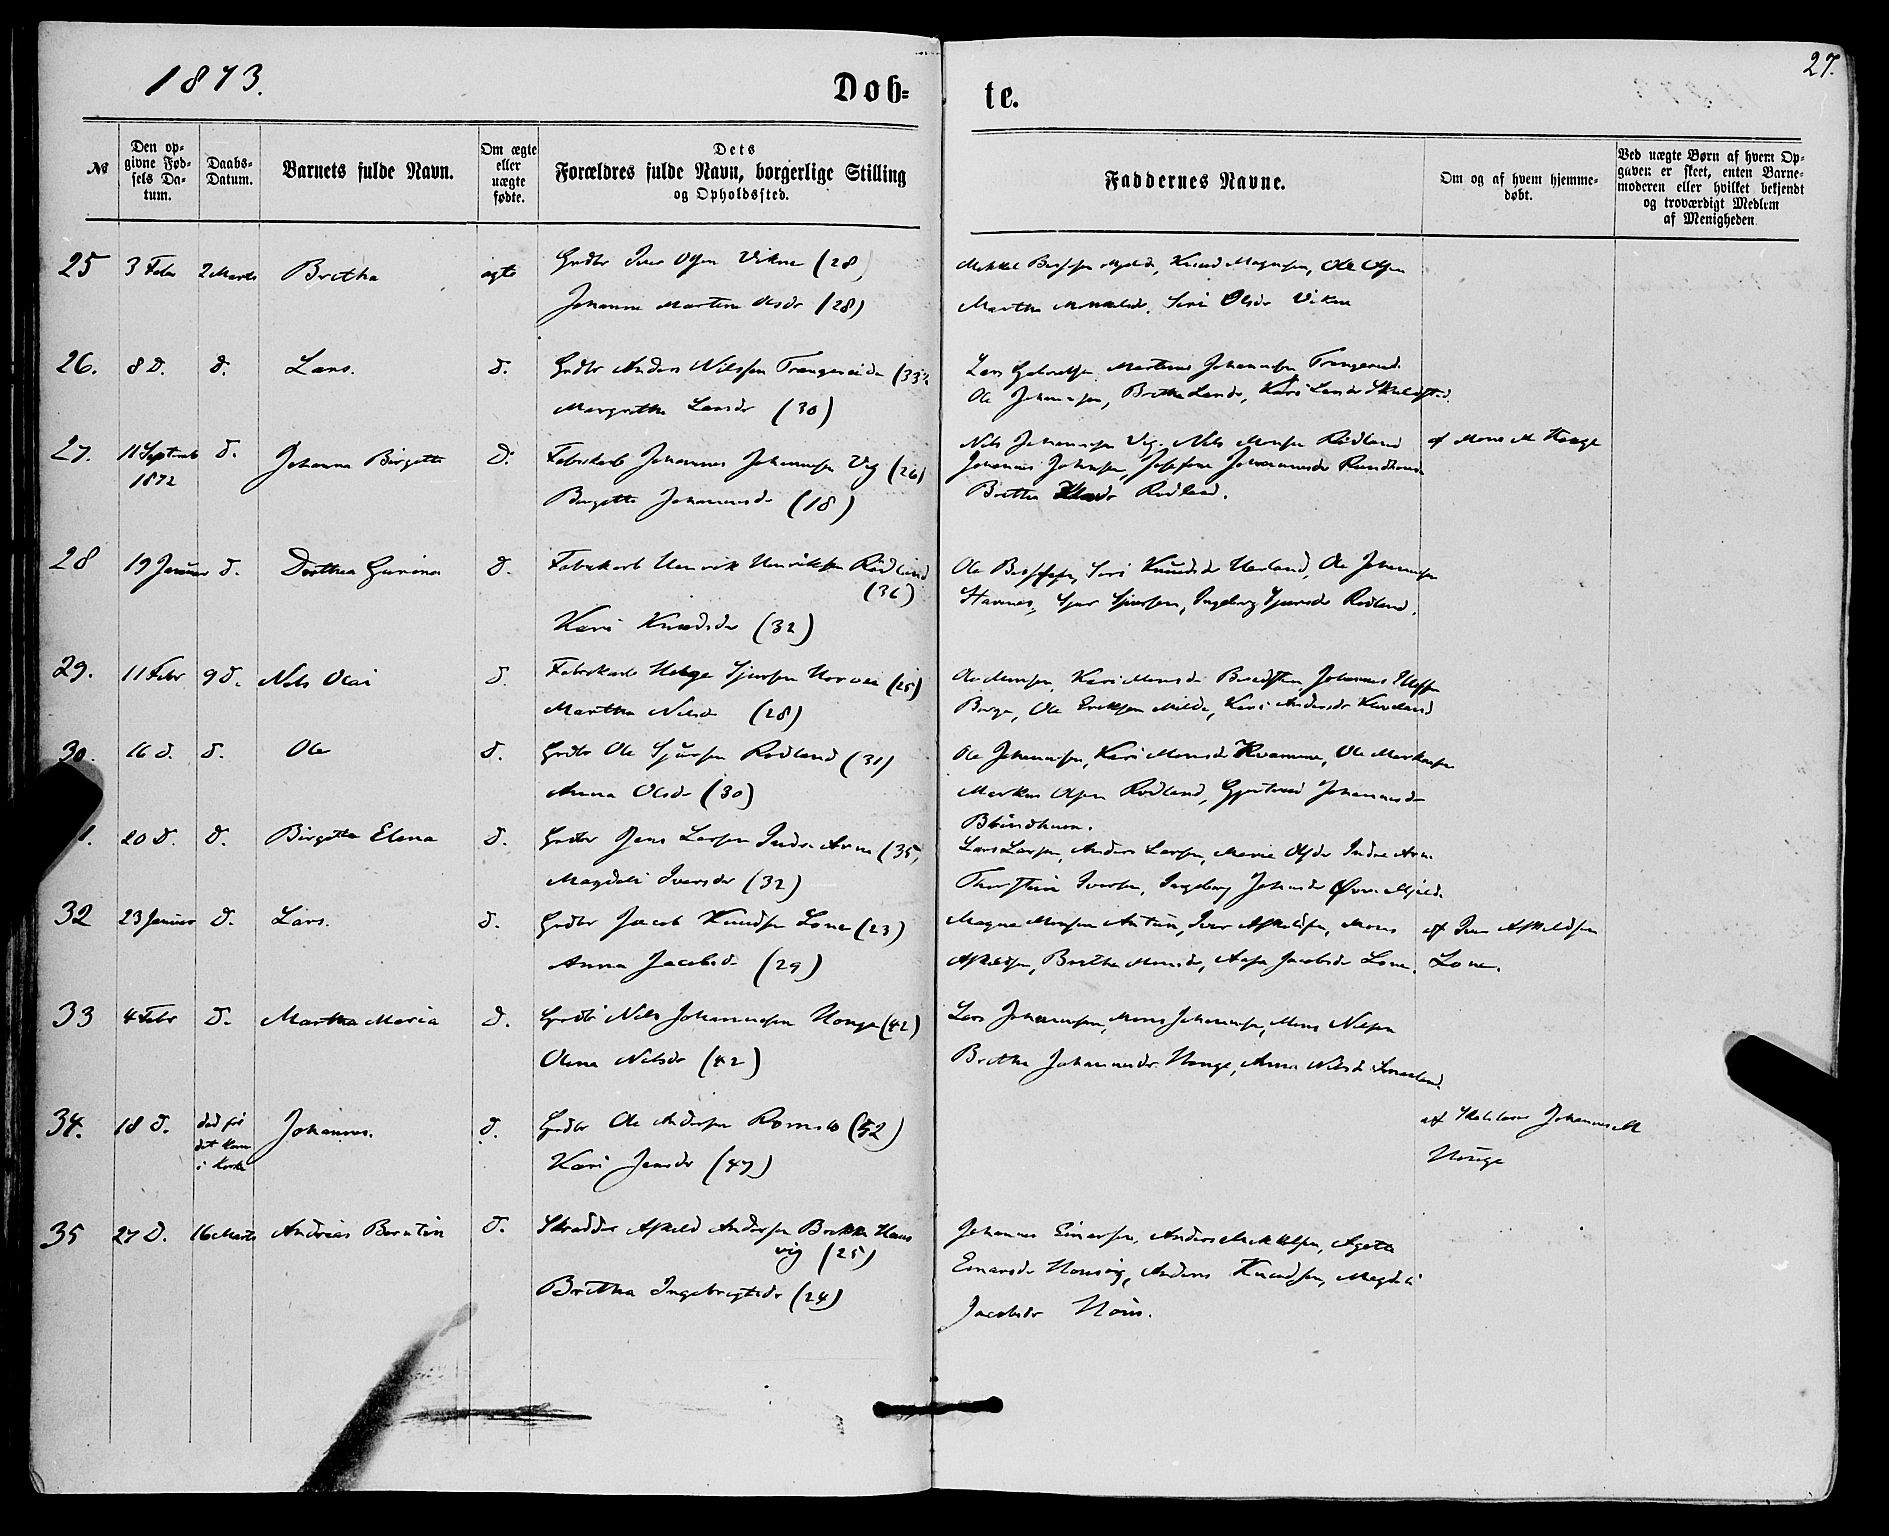 1873.
Dob=
te.
27.
№
Den op=
givne Fød=
sels Da=
tum.
Daabs=
Datum.
Barnets fulde Navn.
Om ægte
eller
uægte
fødte.
Dets
Forældres fulde Navn, borgerlige Stilling
og Opholdssted.
Faddernes Navne.
Om og af hvem hjemme=
døbt.
Ved uægte Børn af hvem Op=
gaven er skeet, enten Barne=
moderen eller hvilket bekjendt
og troværdigt Medlem
af Menigheden
25 3 Febr 2 Marts Britha ægte Grdbr Iver Olsen Vikne (28)
Johanna Martine Olsdr (28)
Magnesen, Ole Olsen
Martha Siri Olsdr Vikne
26. 8 D. D. Lars. D. Grdbr Anders Nilssen Trangereide (33½
Margrethe Larsdr (30)
Lars Martinus Johannessen Trangereid
Ole Johannessen, Britha Larsdr, Kari Larsdr
27. 11 Septemb D. Johanna Birgitte D. Fabrikarb Johannes Johannessen Veg (26)
1872
Birgitte Johannesdr (18)
Nils Johannessen Veg, Nils Monsen Rødland
Johannes Johnsen, Josefine Johannesdr
Britha Rødland.
af Mons M Houge
28 19 Januar D. Dorthea Gurina D. Fabrikarb Henrik Henriksen Rødland
(36)
Kari Knudsdr (32)
Ole Siri Knudsdr Herland, Ole Johannessen
Sjur Sjursen, Ingeborg Sjursdr Rødland.
29. 11 Febr 9 D. Nils Olai D. Fabrikarb Helge Sjursen (25)
Martha Nilsdr (28)
Ole Monsen, Kari Monsdr Johannes
Berge, Ole Eriksen Milde, Kari Andersdr
30. 16 D. D. Ole D. Grdbr Ole Sjursen Rødland (31)
Anna Olsdr (30)
Ole Johannessen, Kari Monsdr Kvamme, Ole Markussen
Markus Olsen Rødland, Gjertrud Johannesdr
Blindheim.
20 D. D. Birgitte Elena D. Grdbr Jens Larsen Indre Arne (35)
Magdeli Iversdr (32)
Lars Larsen, Anders Larsen, Marie Olsdr Indre Arne
Thorstein Iversen, Ingeborg Johnsdr Øvre Mjelde
32 23 Januar D. Lars. D. Grdbr Jacob Knudsen Lone (23)
Anna Jacobsdr (29)
Magne Monsen Antun, Iver Askildsen, Mons
Askildsen, Britha Monsdr, Aasa Jacobsdr Lone.
af Iver Askildsen
Lone.
33 4 Febr D. Martha Maria D. Grdbr Nils Johannessen Houge (42)
Olina Nilsdr (42)
Lars Johannessen, Mons Johannessen, Mons Nilsen
Britha Johannesdr Houge, Anna Nilsdr
34. 18 D. død før
det kom
i Kirke
Johannes. D. Grdbr Ole Andersen Romslo (52)
Kari Jensdr (47)
af Johannes M
Houge
35 27 D. 16 Marts Andreas Berntin D. Skrædder Askild Andersen Brekke Haus
vig (25)
Britha Ingebrigtsdr (24)
Johannes Einarsen, Anders Mikkelsen, Agatha
Einarsdr Housvig, Anders Knudsen, Magdeli
Jacobsdr Hous.